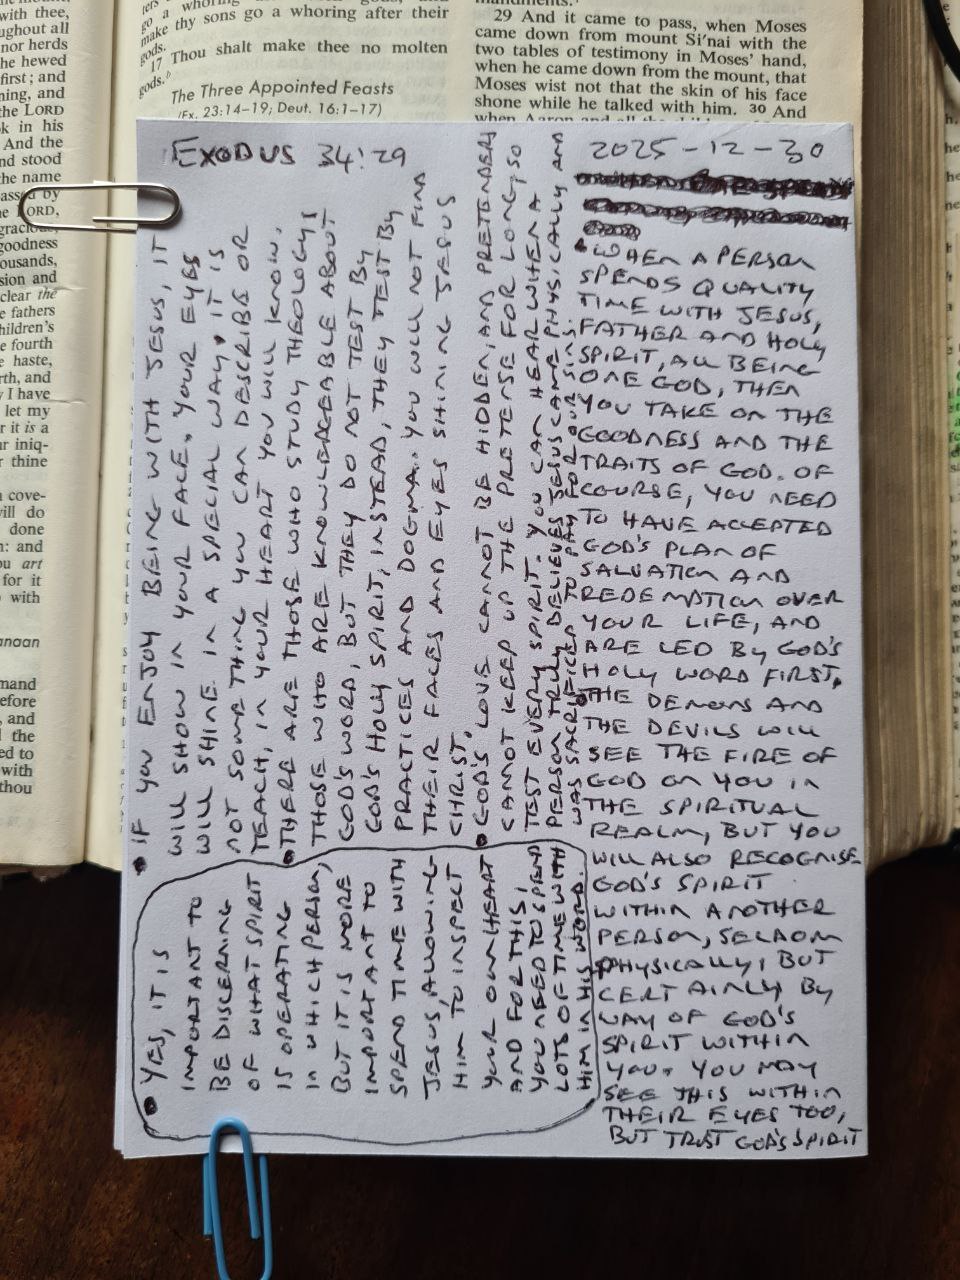 go a whoring after their gods, and
make thy sons go a whoring after their
gods.
17 Thou shalt make thee no molten
gods.
The Three Appointed Feasts
(Ex. 23:14–19; Deut. 16:1–17)
29 And it came to pass, when Moses
came down from mount Si'nai with the
two tables of testimony in Moses' hand,
when he came down from the mount, that
Moses wist not that the skin of his face
shone while he talked with him. 30 And
when Aaron and all the
with thee,
nor herds
he hewed
first; and
the LORD
k in his
And the
nd stood
the name
by
LORD,
goodness
ousands,
sion and
clear the
e fathers
hildren's
e fourth
e haste,
rth, and
I have
let my
r it is a
ur iniq-
r thine
cove-
will do
done
n: and
ou art
for it
with
anaan
mand
efore
, and
the
ed to
with
thou
EXODUS 34:29
2025-12-30
• WHEN A PERSON
SPENDS QUALITY
TIME WITH JESUS,
FATHER AND HOLY
SPIRIT, ALL BEING
ONE GOD, THEN
YOU TAKE ON THE
GOODNESS AND THE
TRAITS OF GOD. OF
COURSE, YOU NEED
TO HAVE ACCEPTED
GOD'S PLAN OF
SALVATION AND
REDEMPTION OVER
YOUR LIFE, AND
ARE LED BY GOD'S
HOLY WORD FIRST.
THE DEMONS AND
THE DEVILS WILL
SEE THE FIRE OF
GOD ON YOU IN
THE SPIRITUAL
REALM, BUT YOU
WILL ALSO RECOGNISE
GOD'S SPIRIT
WITHIN ANOTHER
PERSON, SELDOM
PHYSICALLY, BUT
CERTAINLY BY
WAY OF GOD'S
SPIRIT WITHIN
YOU. YOU MAY
SEE THIS WITHIN
THEIR EYES TOO,
BUT TRUST GOD'S SPIRIT
• IF YOU ENJOY BEING WITH JESUS, IT
WILL SHOW IN YOUR FACE. YOUR EYES
WILL SHINE IN A SPECIAL WAY. IT IS
NOT SOMETHING YOU CAN DESCRIBE OR
TEACH, IN YOUR HEART YOU WILL KNOW.
• THERE ARE THOSE WHO STUDY THEOLOGY,
THOSE WHO ARE KNOWLEDGEABLE ABOUT
GOD'S WORD, BUT THEY DO NOT TEST BY
GOD'S HOLY SPIRIT, INSTEAD, THEY TEST BY
PRACTICES AND DOGMA. YOU WILL NOT FIND
THEIR FACES AND EYES SHINING JESUS
CHRIST.
• GOD'S LOVE CANNOT BE HIDDEN, AND PRETENDERS
CANNOT KEEP UP THE PRETENSE FOR LONG, SO
TEST EVERY SPIRIT. YOU CAN HEAR WHEN A
PERSON TRULY BELIEVES JESUS CAME PHYSICALLY AND
WAS SACRIFICED TO PAY FOR OUR SINS.
• YES, IT IS
IMPORTANT TO
BE DISCERNING
OF WHAT SPIRIT
IS OPERATING
IN WHICH PERSON,
BUT IT IS MORE
IMPORTANT TO
SPEND TIME WITH
JESUS, ALLOWING
HIM TO INSPECT
YOUR OWN HEART
AND FOR THIS,
YOU NEED TO SPEND
LOTS OF TIME WITH
HIM IN HIS WORD.